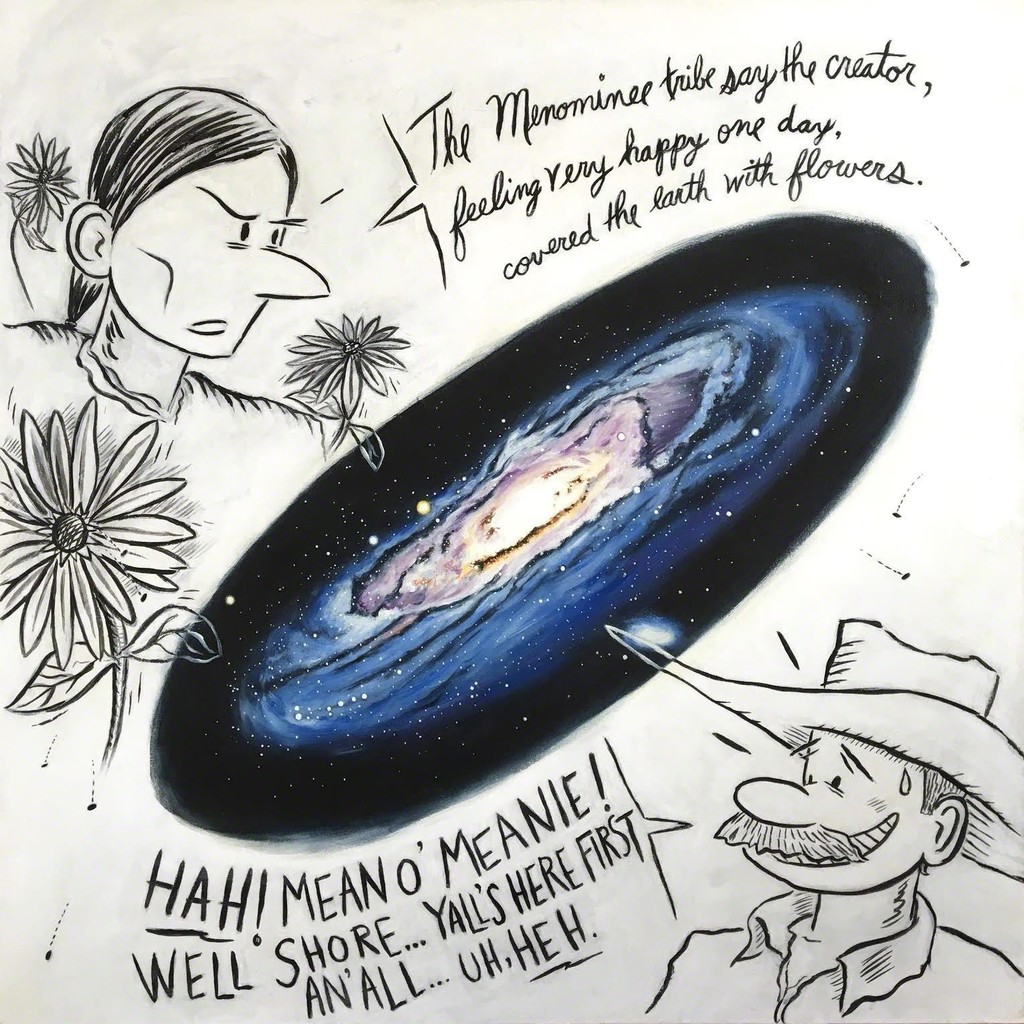 The Menominee tribe say the creator,
feeling very happy one day,
covered the earth with flowers.
HAH! MEAN O' MEANIE!
WELL SHORE... YALL'S HERE FIRST
AN' ALL... UH, HEH.